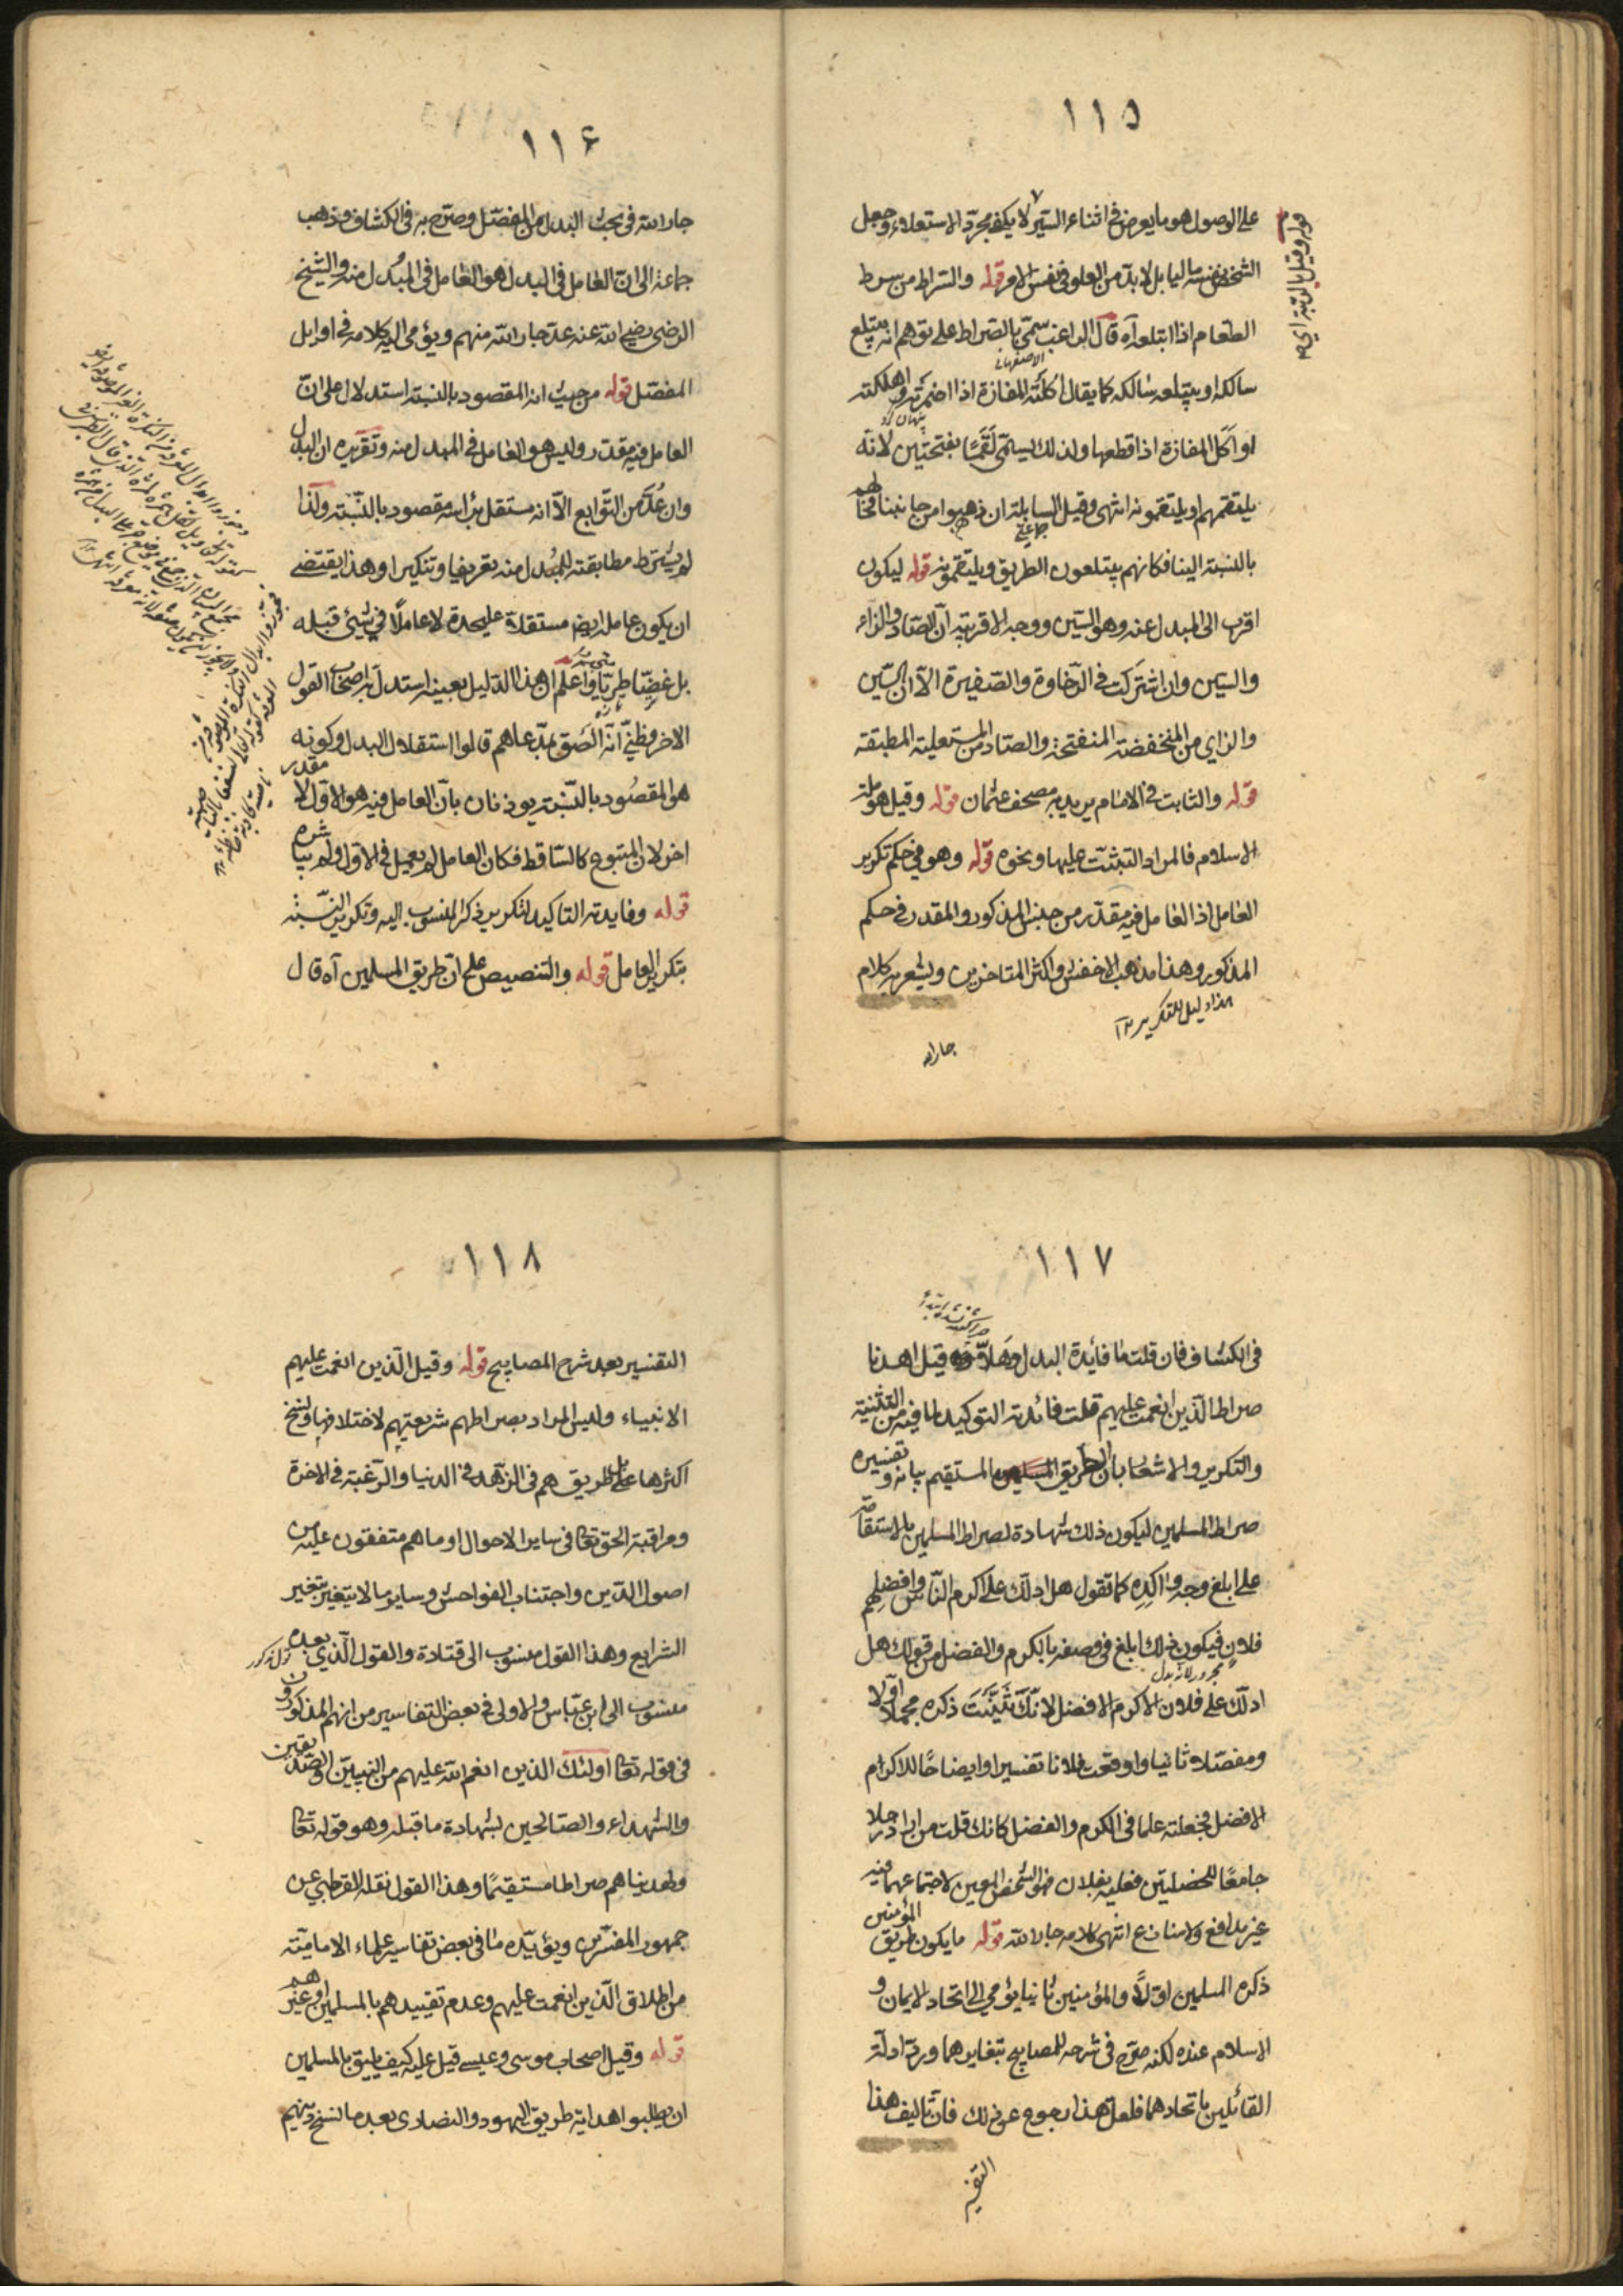 ١١٥
على الوصول هو ما يعرض فى اثناء السير لا يكفى مجرد الاستعلاء وجعل
قوله وقيل بالرتبة اى
الشخص نفسه عاليا بل لا بد من العلو فى نفس الامر قوله والسراط من سرط
الطعام اذا ابتلعه آه قال الراغب سمى بالصراط على توهم انه يبتلع
الاصفهانى
سالكه او يبتلعه سالكه كما يقال اكلته المفازة اذا اضمرته او اهلكته
پنهان كرد
او اكل المفازة اذا قطعها ولذلك يسمى لقما بفتحتين لانه
يلتقمهم او يلتقمونه انتهى وقيل السابلة ان ذهبوا من جانبنا فحالهم
جماعتى
بالنسبة الينا فكانهم يبتلعون الطريق ويلتقمونه قوله ليكون
اقرب الى المبدل عنه وهو السين ووجه الاقربية ان الصاد والزاء
والسين وان اشتركت فى الرخاوة والصفيرة الا ان السين
والزاى من المنخفضة المنفتحة والصاد من المستعلية المطبقة
قوله والثابت فى الامام يريد به مصحف عثمان قوله وقيل هو ملة
الاسلام فالمراد التثبت عليها ونحوه قوله وهو فى حكم تكرير
العامل اذ العامل فيه مقدر من جنس المذكور والمقدر فى حكم
المذكور وهذا مذهب الاخفش واكثر المتاخرين ويشعر به كلام
هذا دليل للتكرير
جار الله
١١٦
جار الله فى بحث البدل من المفصل وصرح به فى الكشاف وذهب
جماعة الى ان العامل فى البدل هو العامل فى المبدل منه والشيخ
الرضى رضى الله عنه عد جار الله منهم ويؤمى اليه كلامه فى اوايل
المفصل قوله من حيث انه المقصود بالنسبة استدلال على ان
العامل فيه مقدر وليس هو العامل فى المبدل منه وتقريره ان البدل
وان عد من التوابع الا انه مستقل براسه مقصود بالنسبة ولذا
لم يشترط مطابقته للمبدل منه تعريفا وتنكيرا وهذا يقتضى
ان يكون عامله ايضا مستقلا على حدة لا عاملا فى شئ قبله
بل غضا طريا واعلم ان هذا الدليل بعينه استدل به اصحاب القول
الاخر وظنى انه الصق بمدعاهم قالوا استقلال البدل وكونه
هو المقصود بالنسبة يوذنان بان العامل فيه هو الاول لا مقدر
اخر لان المتبوع كالساقط فكان العامل لم يعمل فى الاول ولم يباشره
قوله وفايدته التاكيد لتكرير ذكر المنسوب اليه وتكرير النسبة
بتكرير العامل قوله والتنصيص على ان طريق المسلمين آه قال
١١٧
فى الكشاف فان قلت ما فائدة البدل وهلا قيل اهدنا
صراط الذين انعمت عليهم قلت فائدته التوكيد لما فيه من التثنية
والتكرير والاشعار بان الطريق المستقيم بيانه وتفسيره
صراط المسلمين ليكون ذلك شهادة لصراط المسلمين بالاستقامة
على ابلغ وجه واكده كما تقول هل ادلك على اكرم الناس وافضلهم
فلان فيكون ذلك ابلغ فى وصفه بالكرم والفضل من قولك هل
مجرور لانه بدل
ادلك على فلان الاكرم الافضل لانك ثنيت ذكره مجملا اولا
ومفصلا ثانيا واوقعت فلانا تفسيرا وايضاحا للاكرم
الافضل فجعلته علما فى الكرم والفضل كانك قلت من اراد رجلا
جامعا للخصلتين فعليه بفلان فهو الشخص المعين لاجتماعهما فيه
غير مدافع ولا منازع انتهى كلامه جار الله قوله ما يكون طريق المؤمنين
ذكره المسلمين اولا والمؤمنين ثانيا يؤمى الى اتحاد الايمان و
الاسلام عنده لكنه صرح فى شرحه للمصابيح بتغايرهما ورد ادلة
القائلين باتحادهما فلعل هذا رجوع عن ذلك فان تاليف هذا
التفسير
١١٨
التفسير بعد شرح المصابيح قوله وقيل الذين انعمت عليهم
الانبياء وليس المراد بصراطهم شريعتهم لاختلافها ونسخ
اكثرها بل طريقهم فى الزهد فى الدنيا والرغبة فى الاخرة
ومراقبة الحق تعا فى ساير الاحوال او ما هم متفقون عليه من
اصول الدين واجتناب الفواحش وساير ما لا يتغير بتغير
الشرايع وهذا القول منسوب الى قتادة والقول الذى بعده
منسوب الى ابن عباس والاولى فى بعض التفاسير من انهم المذكورون
فى قوله تعا اولئك الذين انعم الله عليهم من النبيين والصديقين
والشهداء والصالحين بشهادة ما قبله وهو قوله تعا
ولهديناهم صراطا مستقيما وهذا القول نقله القرطبى عن
جمهور المفسرين ويؤيده ما فى بعض تفاسير علماء الامامية
من اطلاق الذين انعمت عليهم وعدم تقييدهم بالمسلمين او غيرهم
قوله وقيل اصحاب موسى وعيسى قيل عليه كيف يليق بالمسلمين
ان يطلبوا هداية طريق اليهود والنصارى بعد ما نسخ دينهم